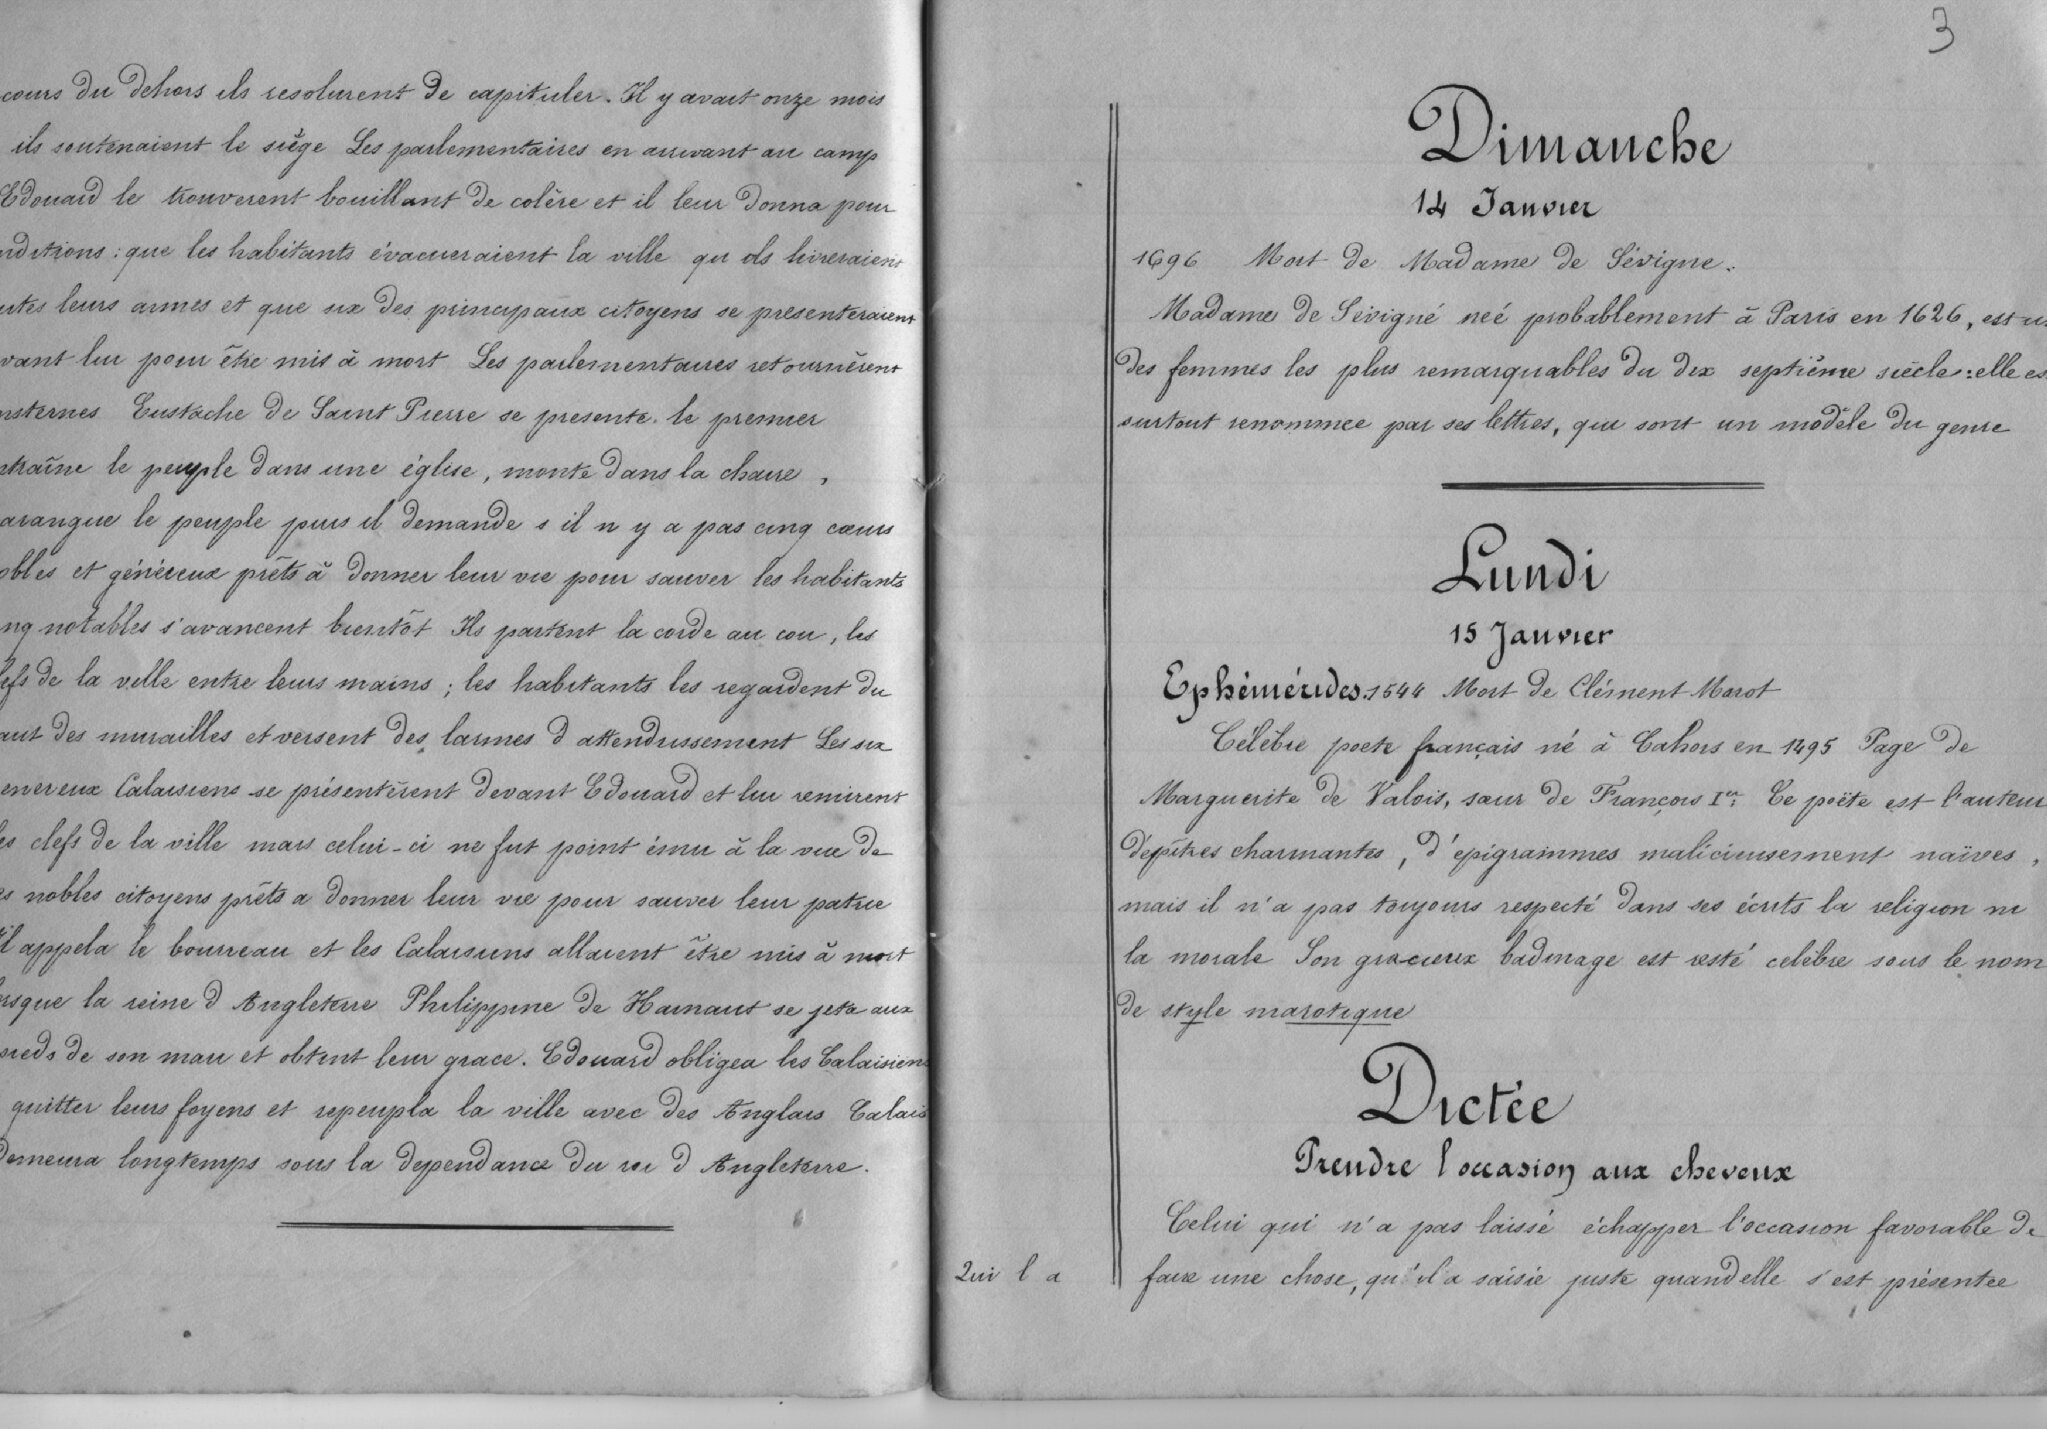 cours du dehors ils resolurent de capituler. Il y avait onze mois
ils soutenaient le siège Les parlementaires en arrivant au camp
Edouard le trouverent bouillant de colère et il leur donna pour
nditions : que les habitants évacueraient la ville qu ils livreraient
utes leurs armes et que six des principaux citoyens se presenteraient
vant lui pour être mis à mort Les parlementaires retournèrent
nsternes Eustache de Saint Pierre se presente le premier
ntraîne le peuple dans une église, monte dans la chaire,
arangue le peuple puis il demande s il n y a pas cinq cœurs
obles et généreux prêts à donner leur vie pour sauver les habitants
nq notables s'avancent bientôt Ils partent la corde au cou, les
lefs de la ville entre leurs mains ; les habitants les regardent du
aut des murailles et versent des larmes d attendrissement Les six
enereux Calaisiens se présentèrent devant Edouard et lui remirent
es clefs de la ville mais celui-ci ne fut point ému à la vue de
es nobles citoyens prêts a donner leur vie pour sauver leur patrie
Il appela le bourreau et les Calaisiens allaient être mis à mort
orsque la reine d Angleterre Philippine de Hainaut se jeta aux
pieds de son mari et obtint leur grace. Edouard obligea les Calaisiens
quitter leurs foyens et repeupla la ville avec des Anglais Calais
Demeura longtemps sous la dependance du roi d Angleterre.
3
Dimanche
14 Janvier
1696 Mort de Madame de Sévigne.
Madame de Sévigné neé probablement à Paris en 1626, est u
des femmes les plus remarquables du dix septième siècle : elle es
surtout renommee par ses lettres, qui sont un modèle du genre
Lundi
15 Janvier
Ephémérides. 1544 Mort de Clément Marot
Célèbre poete français né à Cahors en 1495 Page de
Marguerite de Valois, sœur de François Ier. Ce poëte est l'auteur
d'épitres charmantes, d'épigrammes malicieusement naïves,
mais il n'a pas toujours respecté dans ses écrits la religion ni
la morale Son gracieux badinage est resté celèbre sous le nom
de style marotique
Dictée
Prendre l occasion aux cheveux
Celui qui n'a pas laissé échapper l'occasion favorable de
Qui l a faire une chose, qu'il a saisie juste quand elle s'est présentee